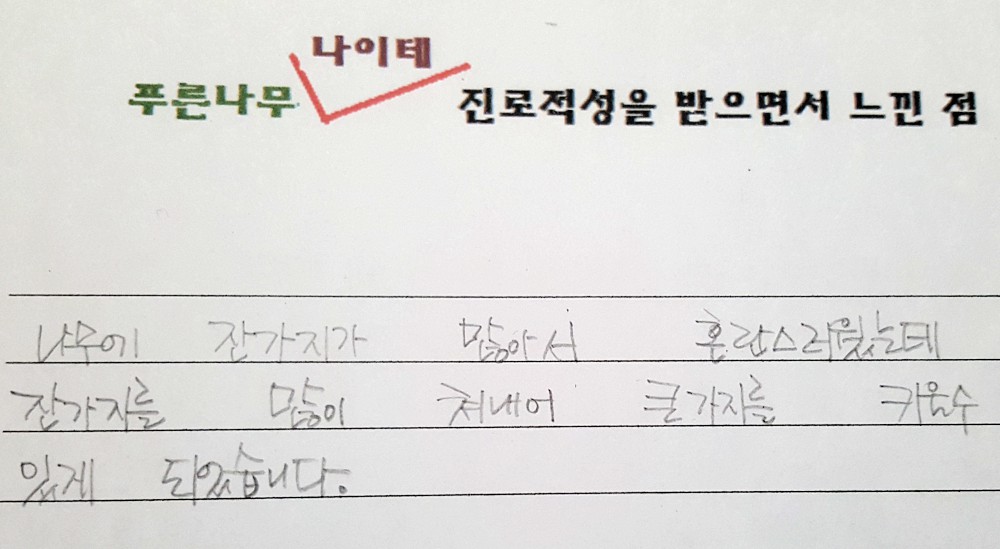 나이테
푸른나무 진로적성을 받으면서 느낀 점
나무에 잔가지가 많아서 혼란스러웠는데
잔가지를 많이 쳐내어 큰가지를 키울수
있게 되었습니다.